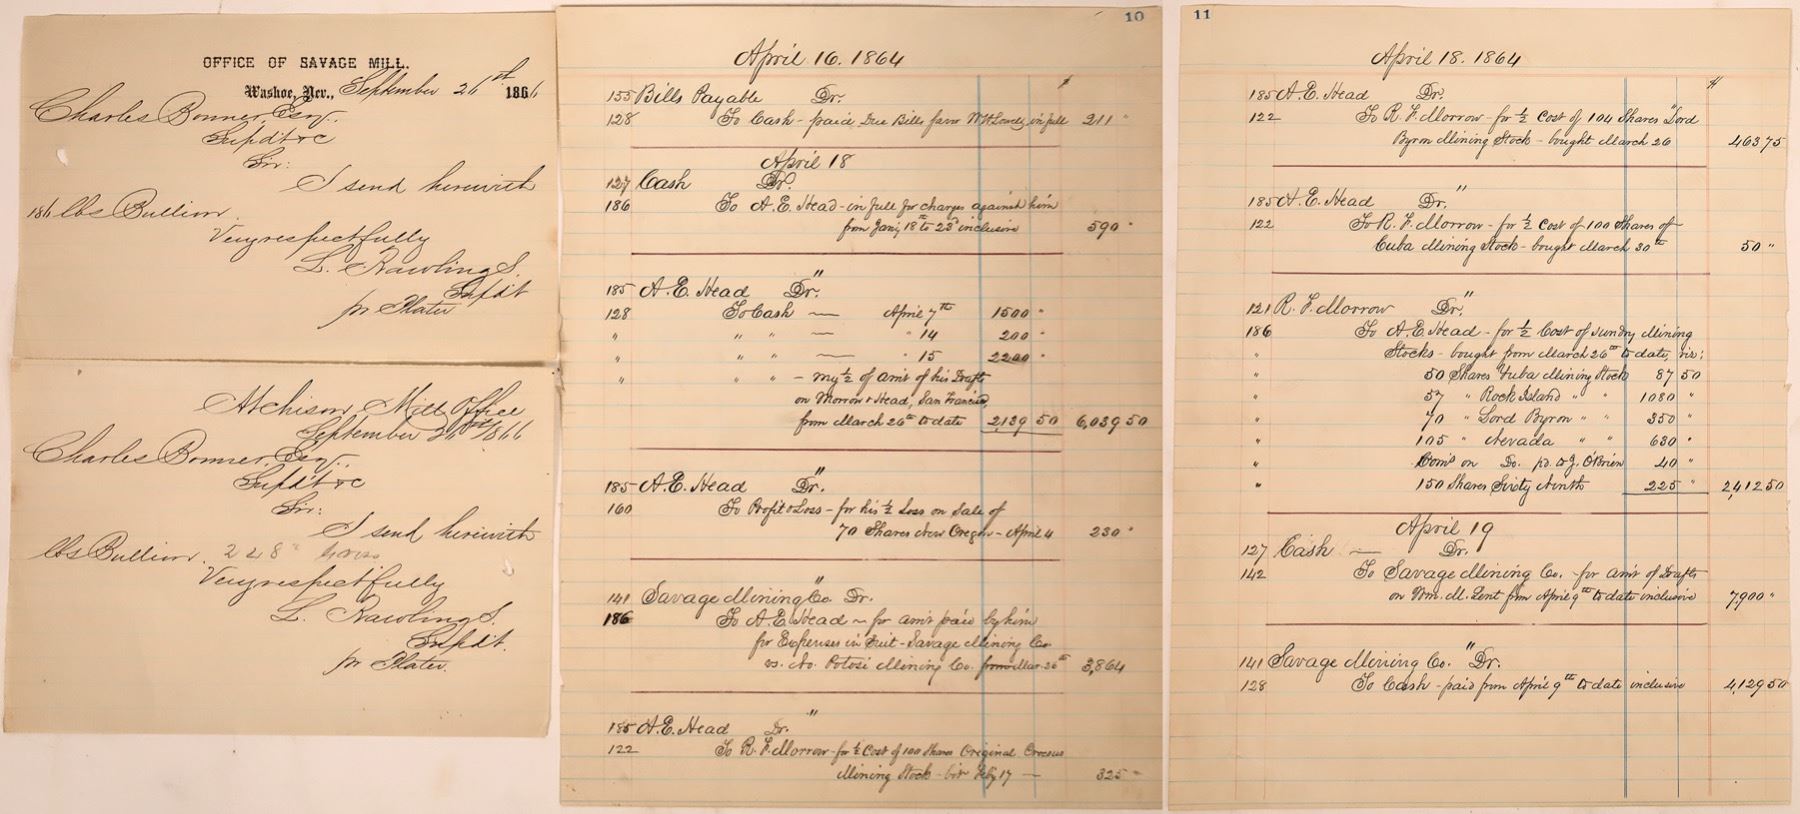 OFFICE OF SAVAGE MILL.
Washoe, Nev., September 26th 1866
Charles Bonner, Esq.
Supdt &c
Sir:
I send herewith
186 lbs Bullion.
Very respectfully
L. Rawlings.
Supdt
pr Plater
Atchison Mill Office
September 26th 1866
Charles Bonner, Esq.
Supdt &c
Sir:
I send herewith
lbs Bullion. 228
Very respectfully
L. Rawlings.
Supdt.
pr Plater.
10
April 16. 1864
$
155 Bills Payable Dr.
128 To Cash - paid Due Bills favor in full 211 "
April 18
127 Cash Dr.
186 To A. E. Head - in full for charges against him
from Jany 18th to 23d inclusive 590 "
"
185 A. E. Head Dr.
128 To Cash — April 7th 1500 "
" " " — " 14 200 "
" " " — " 15 2200 "
" " " - my ½ of amt of his Drafts
on Morrow & Head, San Francisco,
from March 26th to date 2,139 50 6,039 50
"
185 A. E. Head Dr.
160 To Profit & Loss - for his ½ Loss on Sale of
70 Shares New Oregon - April 4 230 "
"
141 Savage Mining Co. Dr.
186 To A. E. Head - for amt paid by him
for Expenses in Suit - Savage Mining Co.
vs. No. Potosi Mining Co. from Mar. 26th 3,864
"
185 A. E. Head Dr.
122 To R. F. Morrow - for ½ Cost of 100 Shares Original Croesus
Mining Stock - bot Feby 17 — 325 "
11
April 18. 1864
$
185 A. E. Head Dr.
122 To R. F. Morrow - for ½ Cost of 104 Shares Lord
Byron Mining Stock - bought March 26 463 75
"
185 A. E. Head Dr.
122 To R. F. Morrow - for ½ Cost of 100 Shares of
Cuba Mining Stock - bought March 30th 50 "
"
121 R. F. Morrow Dr.
186 To A. E. Head - for ½ Cost of sundry Mining
" Stocks - bought from March 26th to date, viz:
" 50 Shares Yuba Mining Stock 87 50
" 57 " Rock Island " " 1080 "
" 70 " Lord Byron " " 350 "
" 105 " Nevada " " 630 "
" Com's on Do. pd. to J. O'Brien 40 "
" 150 Shares Sixty Ninth 225 " 2,412 50
April 19
127 Cash — Dr.
142 To Savage Mining Co. - for amt of Drafts
on Wm. M. Lent from April 9th to date inclusive 7,900 "
"
141 Savage Mining Co. Dr.
128 To Cash - paid from April 9th to date inclusive 4,129 50